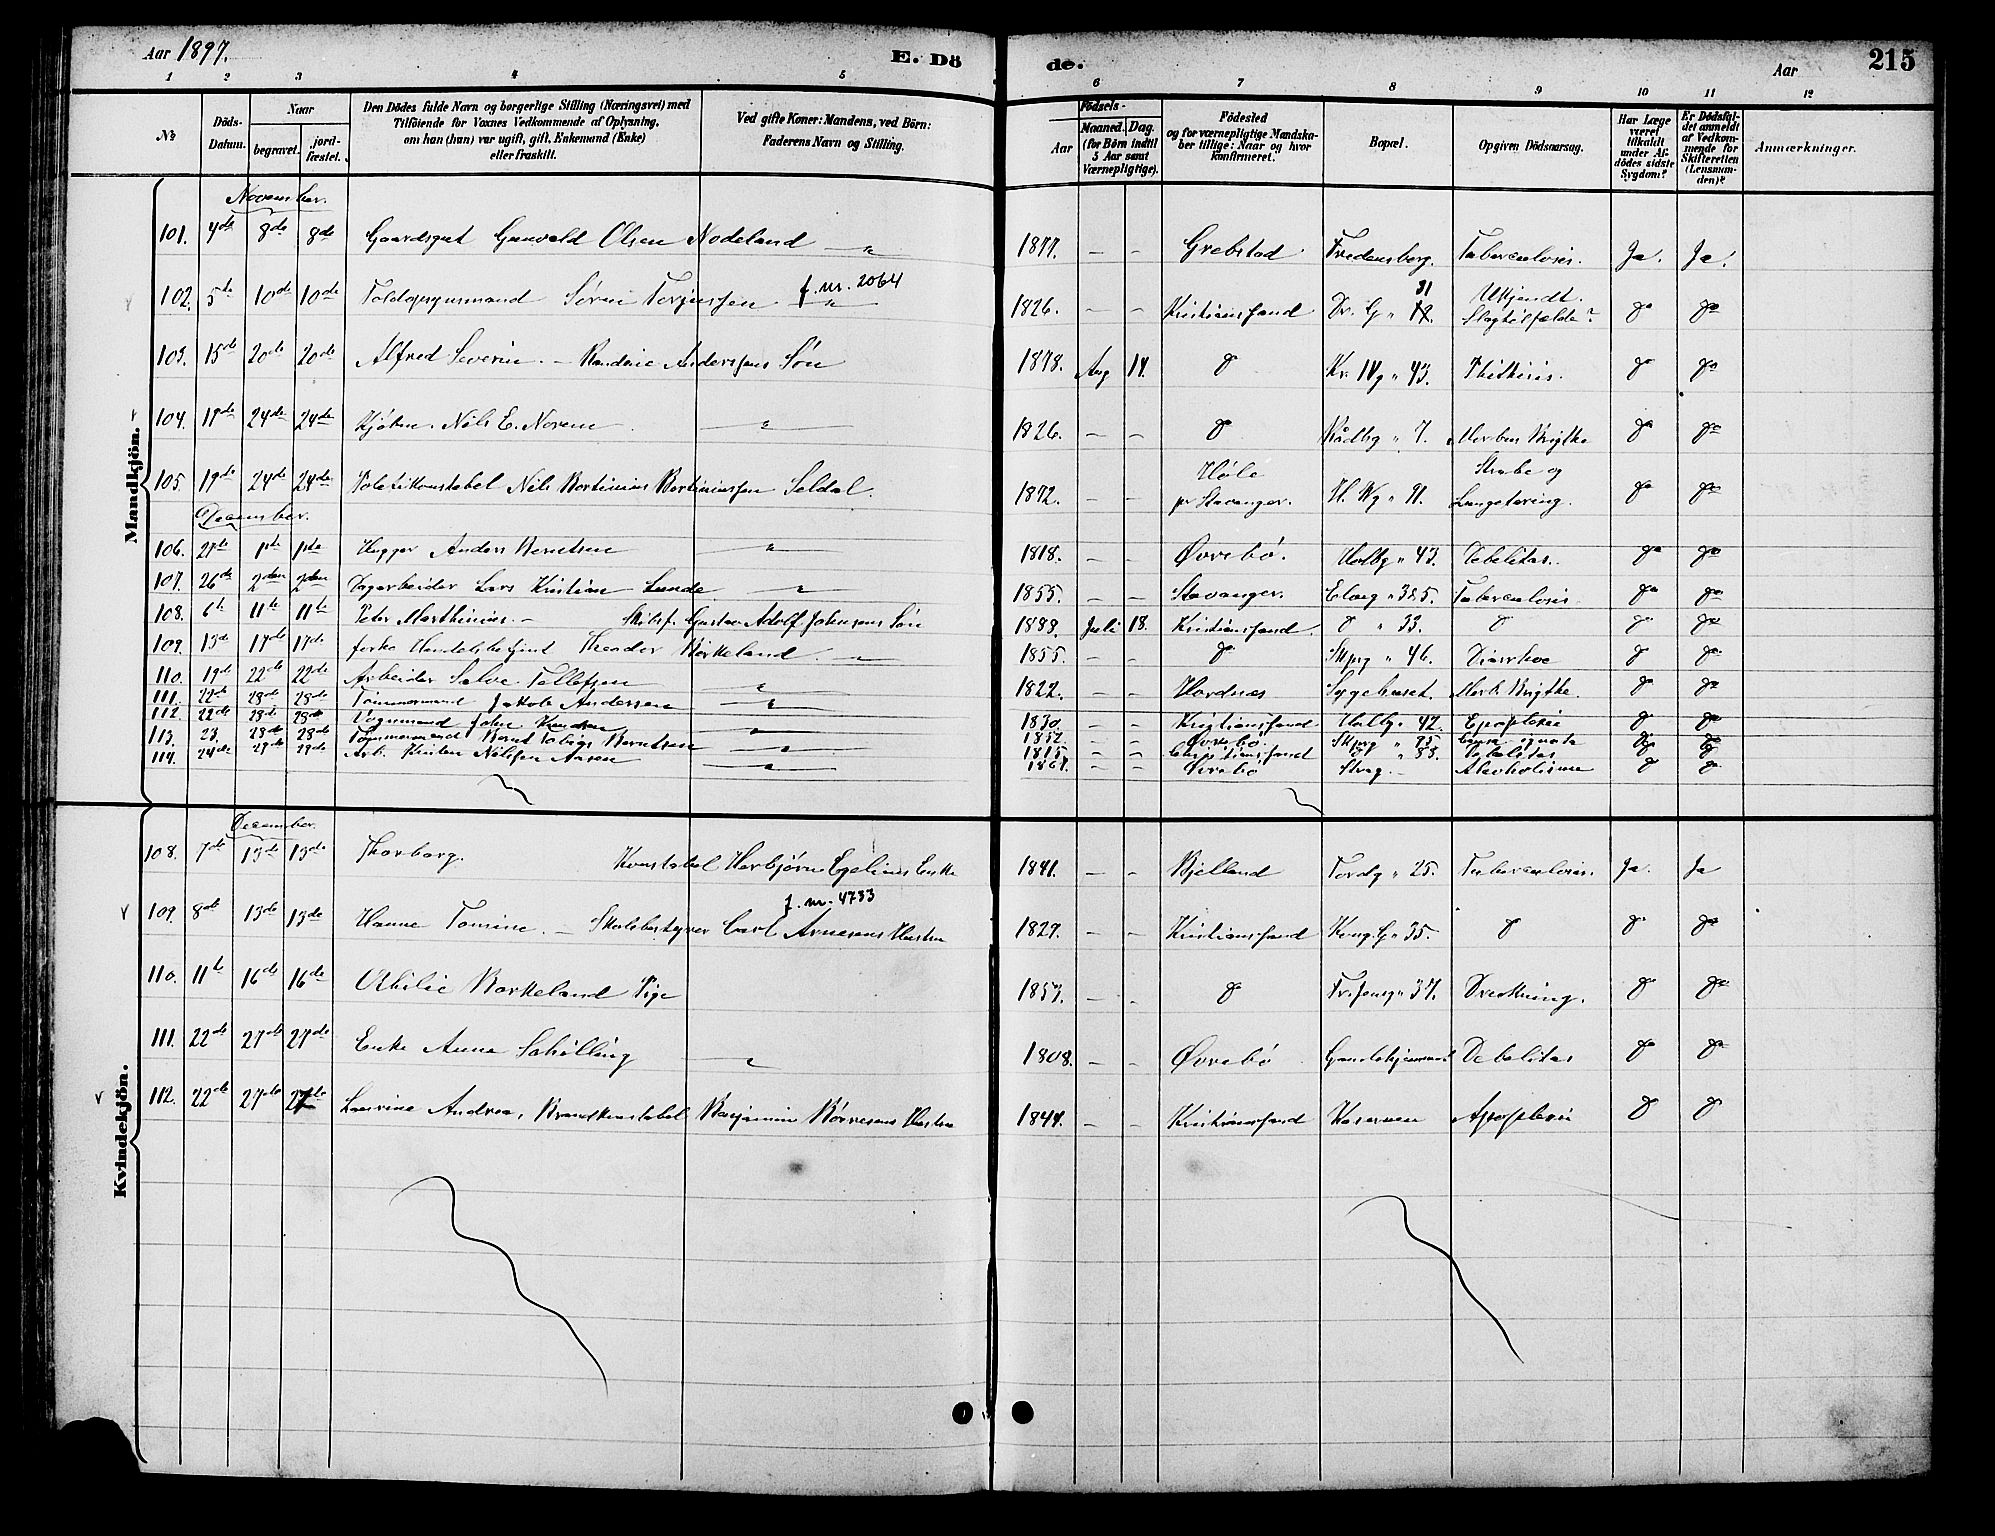 Aar 1897.
E. Dö
de.
Aar
215
1 2 3 4 5 6 7 8 9 10 11 12
№
Döds-Datum.
Naar
begravet.
jord-fæstet.
Den Dödes fulde Navn og borgerlige Stilling (Næringsvei) med
Tilföiende for Voxnes Vedkommende af Oplysning,
om han (hun) var ugift, gift, Enkemand (Enke)
eller fraskilt.
Ved gifte Koner: Mandens, ved Börn:
Faderens Navn og Stilling.
Födsels-
Aar
Maaned. Dag.
(for Börn indtil
5 Aar samt
Værnepligtige).
Födested
og for værnepligtige Mandska-
ber tillige: Naar og hvor
konfirmeret.
Bopæl.
Opgiven Dödsaarsag.
Har Læge
været
tilkaldt
under Af-
dödes sidste
Sygdom?
Er Dödsfal-
det anmeldt
af Vedkom-
mende for
Skifteretten
(Lensman-
den)?
Anmærkninger.
Mandkjön.
November.
101. 4de 8de 8de Gaardsgut Gunvald Olsen Nodeland — " — 1877. — — Grebstad Fredensborg. Tuberculosis. Ja. Ja.
f. nr. 2064
102. 5te 10de 10de Toldopsynsmand Sørn Torjussen — " — 1826. — — Kristianssand Dr. G " 12. 31 Ukjendt. Slagtilfælde?
103. 15de 20de 20de Alfred Severin. — Andersens Søn 1878. Aug 14. Kr. IVg " 43. Phthisis.
104. 17de 24de 24de Nils E. Noren — " — 1826. — — Rådhg " 7. Morbus Brigtke
105. 19de 24de 24de Politikonstabel Nils Bertinius Bertiniussen Seldal. 1872. — — Høle pr Stavanger. Strube og Lungetæring.
December.
106. 27de 1ste 1ste Anders Berntsen — " — 1818. — — Øvrebö. Holbg " 43. Debilitas.
107. 26de 2den 2den Dagarbeider Lars Kristian Lunde — " — 1855. — — Stavanger. Elveg " 325. Tuberculosis
108. 6te 11te 11te Peter Marthinius. — Skibsf. Gustav Adolf Johnsens Søn 1888. Juli 18. Kristianssand. " 33.
109. 13de 17de 17de Handelsbetjent Theodor Birkeland. — " — 1855. — — Skprg " 46. Diarrhoe
110. 19de 22de 22de Arbeider Salve Tellefsen — " — 1822. — — Sygehuset. Morb. Brigtke.
111. 22de 28de 28de Tømmermand Jakob Andersen — " — 1830. — — Kristianssand Holbg " 42.
112. 22de 28de 28de Vognmand John Knudsen — " — 1852. — — Øvrebö. Skprg " 85.
113. 23. 28de 28de Tømmermand Bernt Tobias Berntsen — " — 1815. — — Christianssand " 88. Debilitas
114. 24de 29de 29de Arb. Nilsen Aasen — " — Øvrebö Alcoholisme
Kvindekjön.
December.
108. 7de 13de 13de Thorborg. Konstabel Herbjørn Egelines Enke 1841. — — Bjelland Tordg " 25. Tuberculosis. Ja. Ja
f. nr. 4783
109. 8de 13de 13de Hanne Tomine. — Skolebestyrer Carl Arnesens Hustru 1827. — — Kristianssand Kong. G " 35.
110. 11te 16de 16de Othilie Birkeland Pige 1857. — — " 37. Drukning.
111. 22de 27de 27de Enke Anna Schilling — " — 1808. — — Øvrebö Debilitas
112. 22de 27de 27de Laurine Andrea, Brandkonstabel Benjamin Børresens Hustru 1844. — — Kristianssand Kasernen Apoplexie